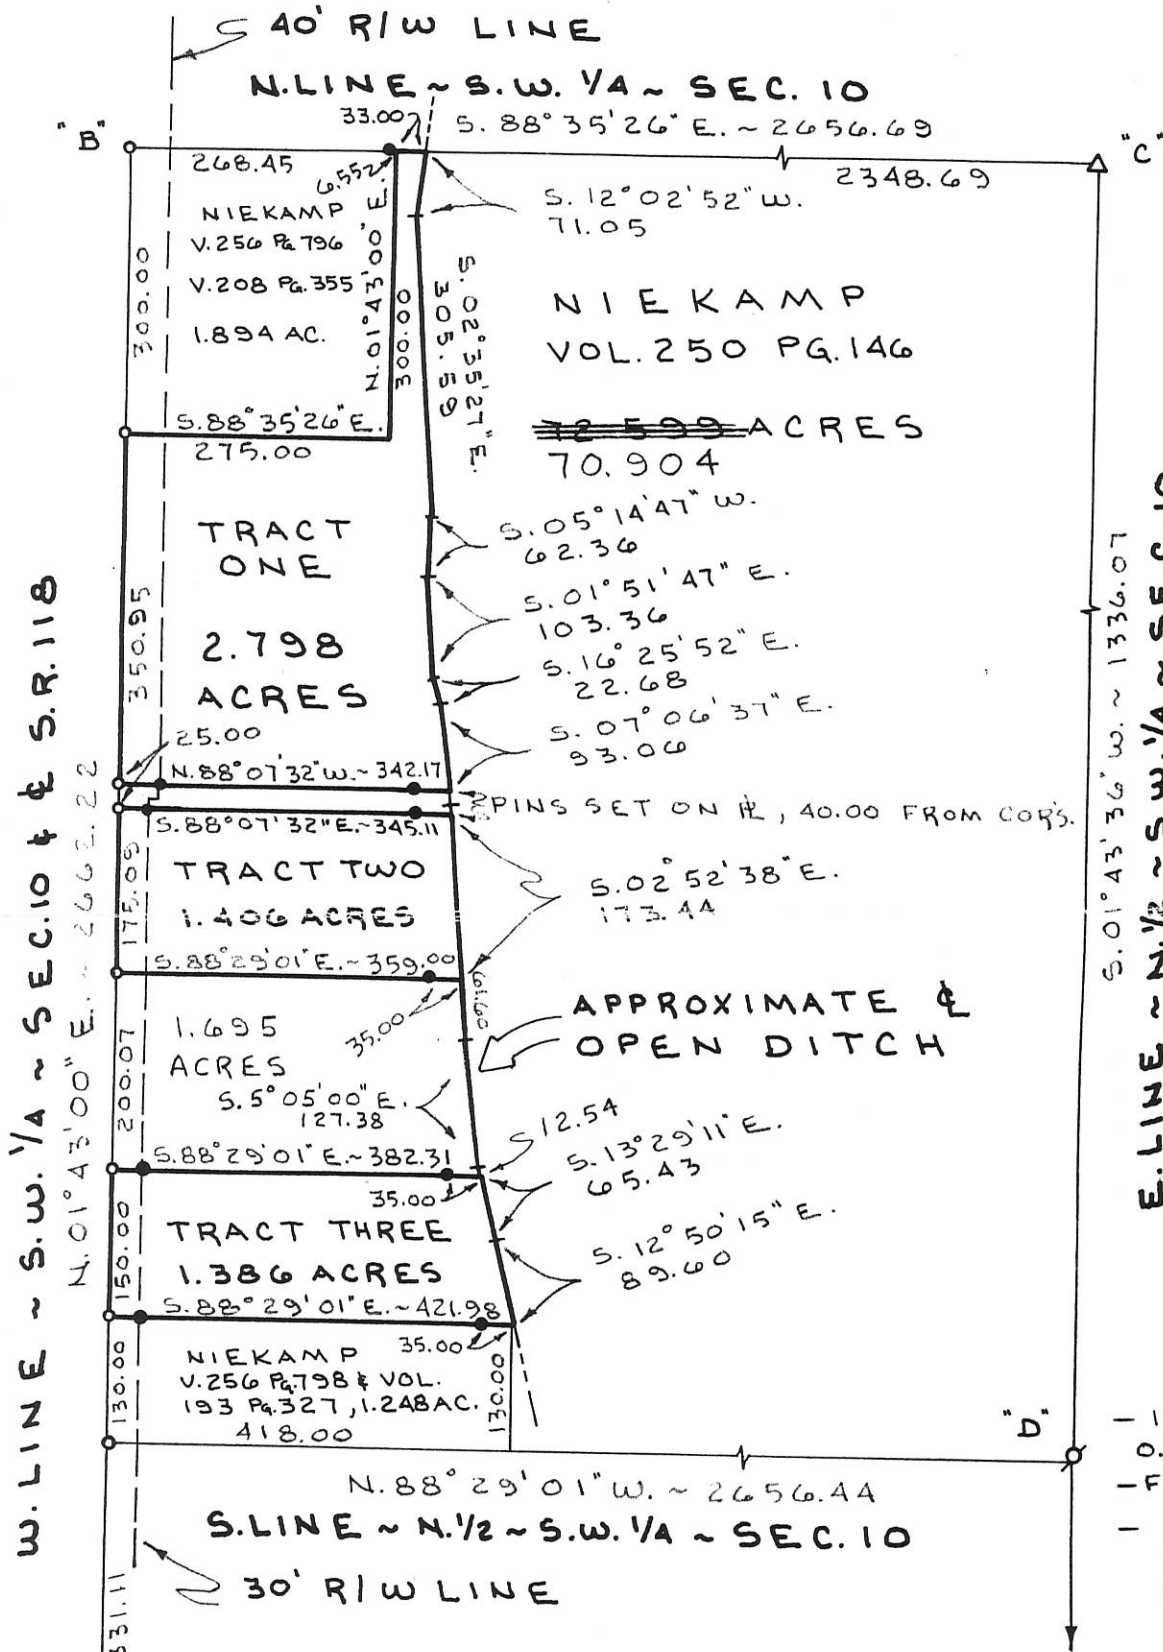 40' R/W LINE
N.LINE ~ S.W. 1/4 ~ SEC. 10
33.00
S. 88° 35' 26" E. ~ 2656.69
"B"
"C"
268.45
2348.69
6.552
S. 12° 02' 52" W.
71.05
NIEKAMP
V.256 PG.796
V.208 PG.355
1.894 AC.
300.00
N.01°43'00"E.
300.00
S.02°35'27"E.
305.59
NIEKAMP
VOL.250 PG.146
72.599 ACRES
70.904
S.88°35'26"E.
275.00
TRACT
ONE
2.798
ACRES
350.95
S.05°14'47" W.
62.36
S.01°51'47" E.
103.36
S.16°25'52" E.
22.68
S.07°06'37" E.
93.06
25.00
N.88°07'32"W.~342.17
PINS SET ON ℄, 40.00 FROM COR'S.
S.88°07'32"E.~345.11
TRACT TWO
1.406 ACRES
175.09
S.02°52'38"E.
173.44
S.88°29'01"E.~359.00
61.60
35.00
1.695
ACRES
200.07
APPROXIMATE ℄
OPEN DITCH
S.5°05'00"E.
127.38
12.54
S.88°29'01"E.~382.31
35.00
S.13°29'11"E.
65.43
TRACT THREE
1.386 ACRES
150.00
S.12°50'15"E.
89.60
S.88°29'01"E.~421.98
35.00
NIEKAMP
V.256 PG.798 & VOL.
193 PG.327, 1.248AC.
418.00
130.00
130.00
"D"
N.88°29'01"W. ~ 2656.44
S.LINE ~ N.1/2 ~ S.W. 1/4 ~ SEC. 10
30' R/W LINE
331.11
W.LINE ~ S.W. 1/4 ~ SEC.10 & ℄ S.R.118
N.01°43'00"E. ~ 2662.22
S.01°43'36"W. ~ 1336.07
E.LINE ~ N.1/2 ~ S.W.1/4 ~ SEC. 10